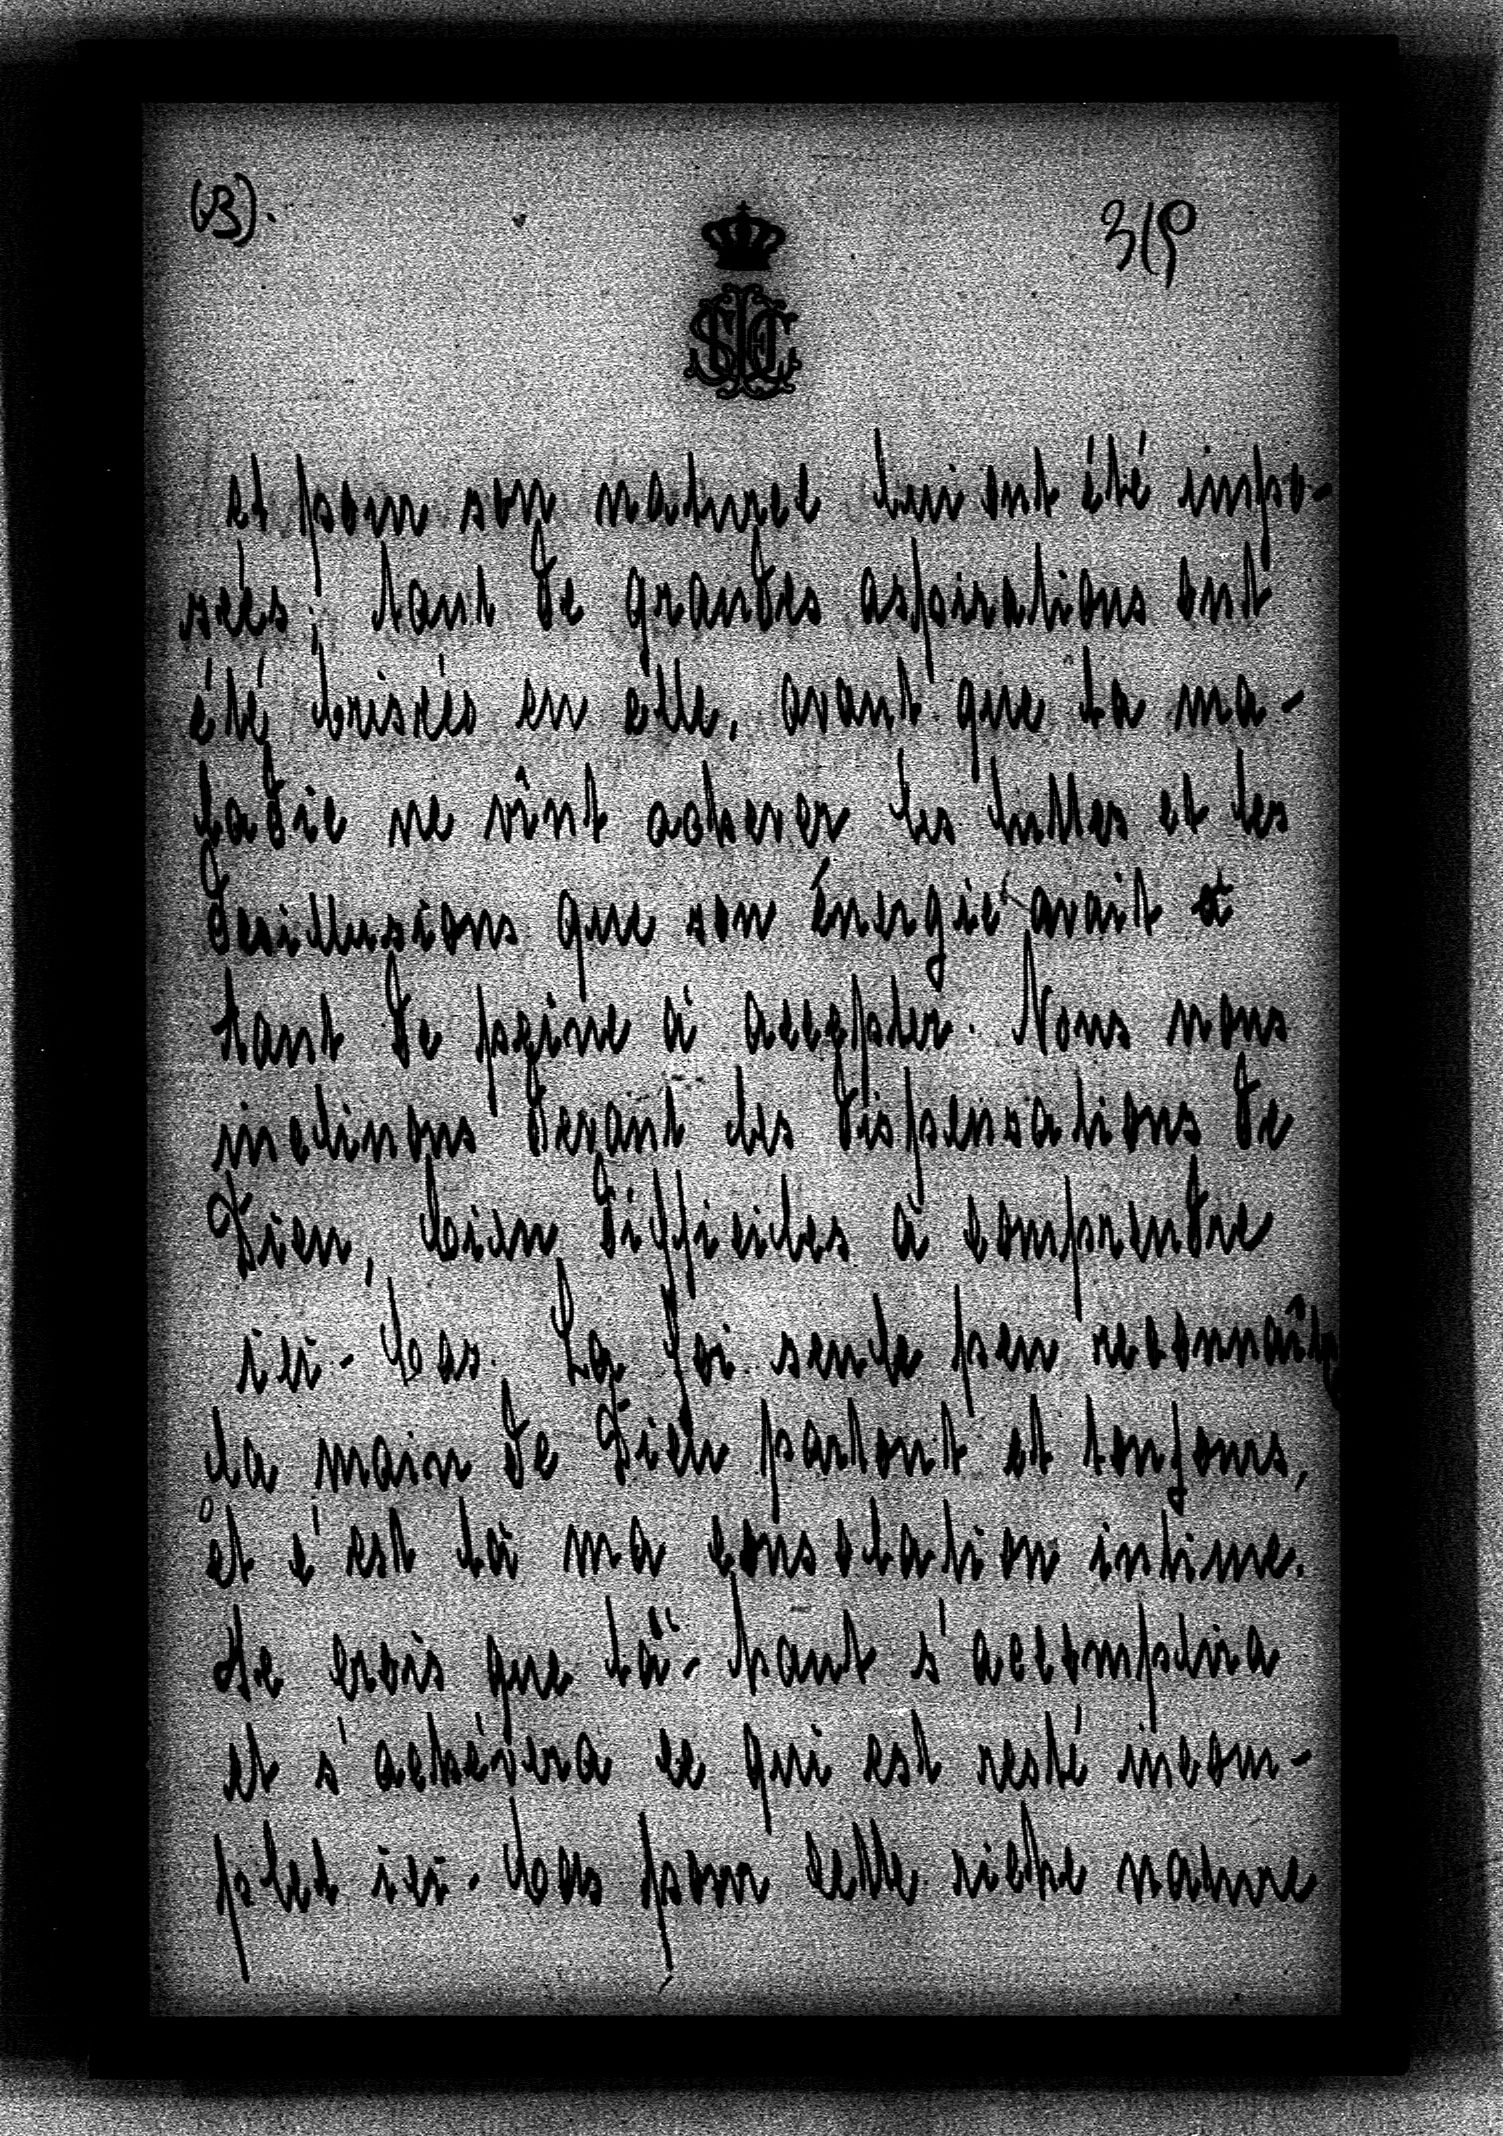 (3).
319
et pour son naturel lui ont été impo-
sées; tant de grandes aspirations ont
été brisées en elle, avant que la ma-
ladie ne vînt achever les luttes et les
desillusions que son énergie avait
tant de peine à accepter. Nous nous
inclinons devant les dispensations de
Dieu, bien difficiles à comprendre
ici-bas. La foi seule peu reconnaître
la main de Dieu partout et toujours,
et c'est là ma consolation intime.
Je crois que là-haut s'accomplira
et s'achèvera ce qui est resté incom-
plet ici-bas pour cette riche nature